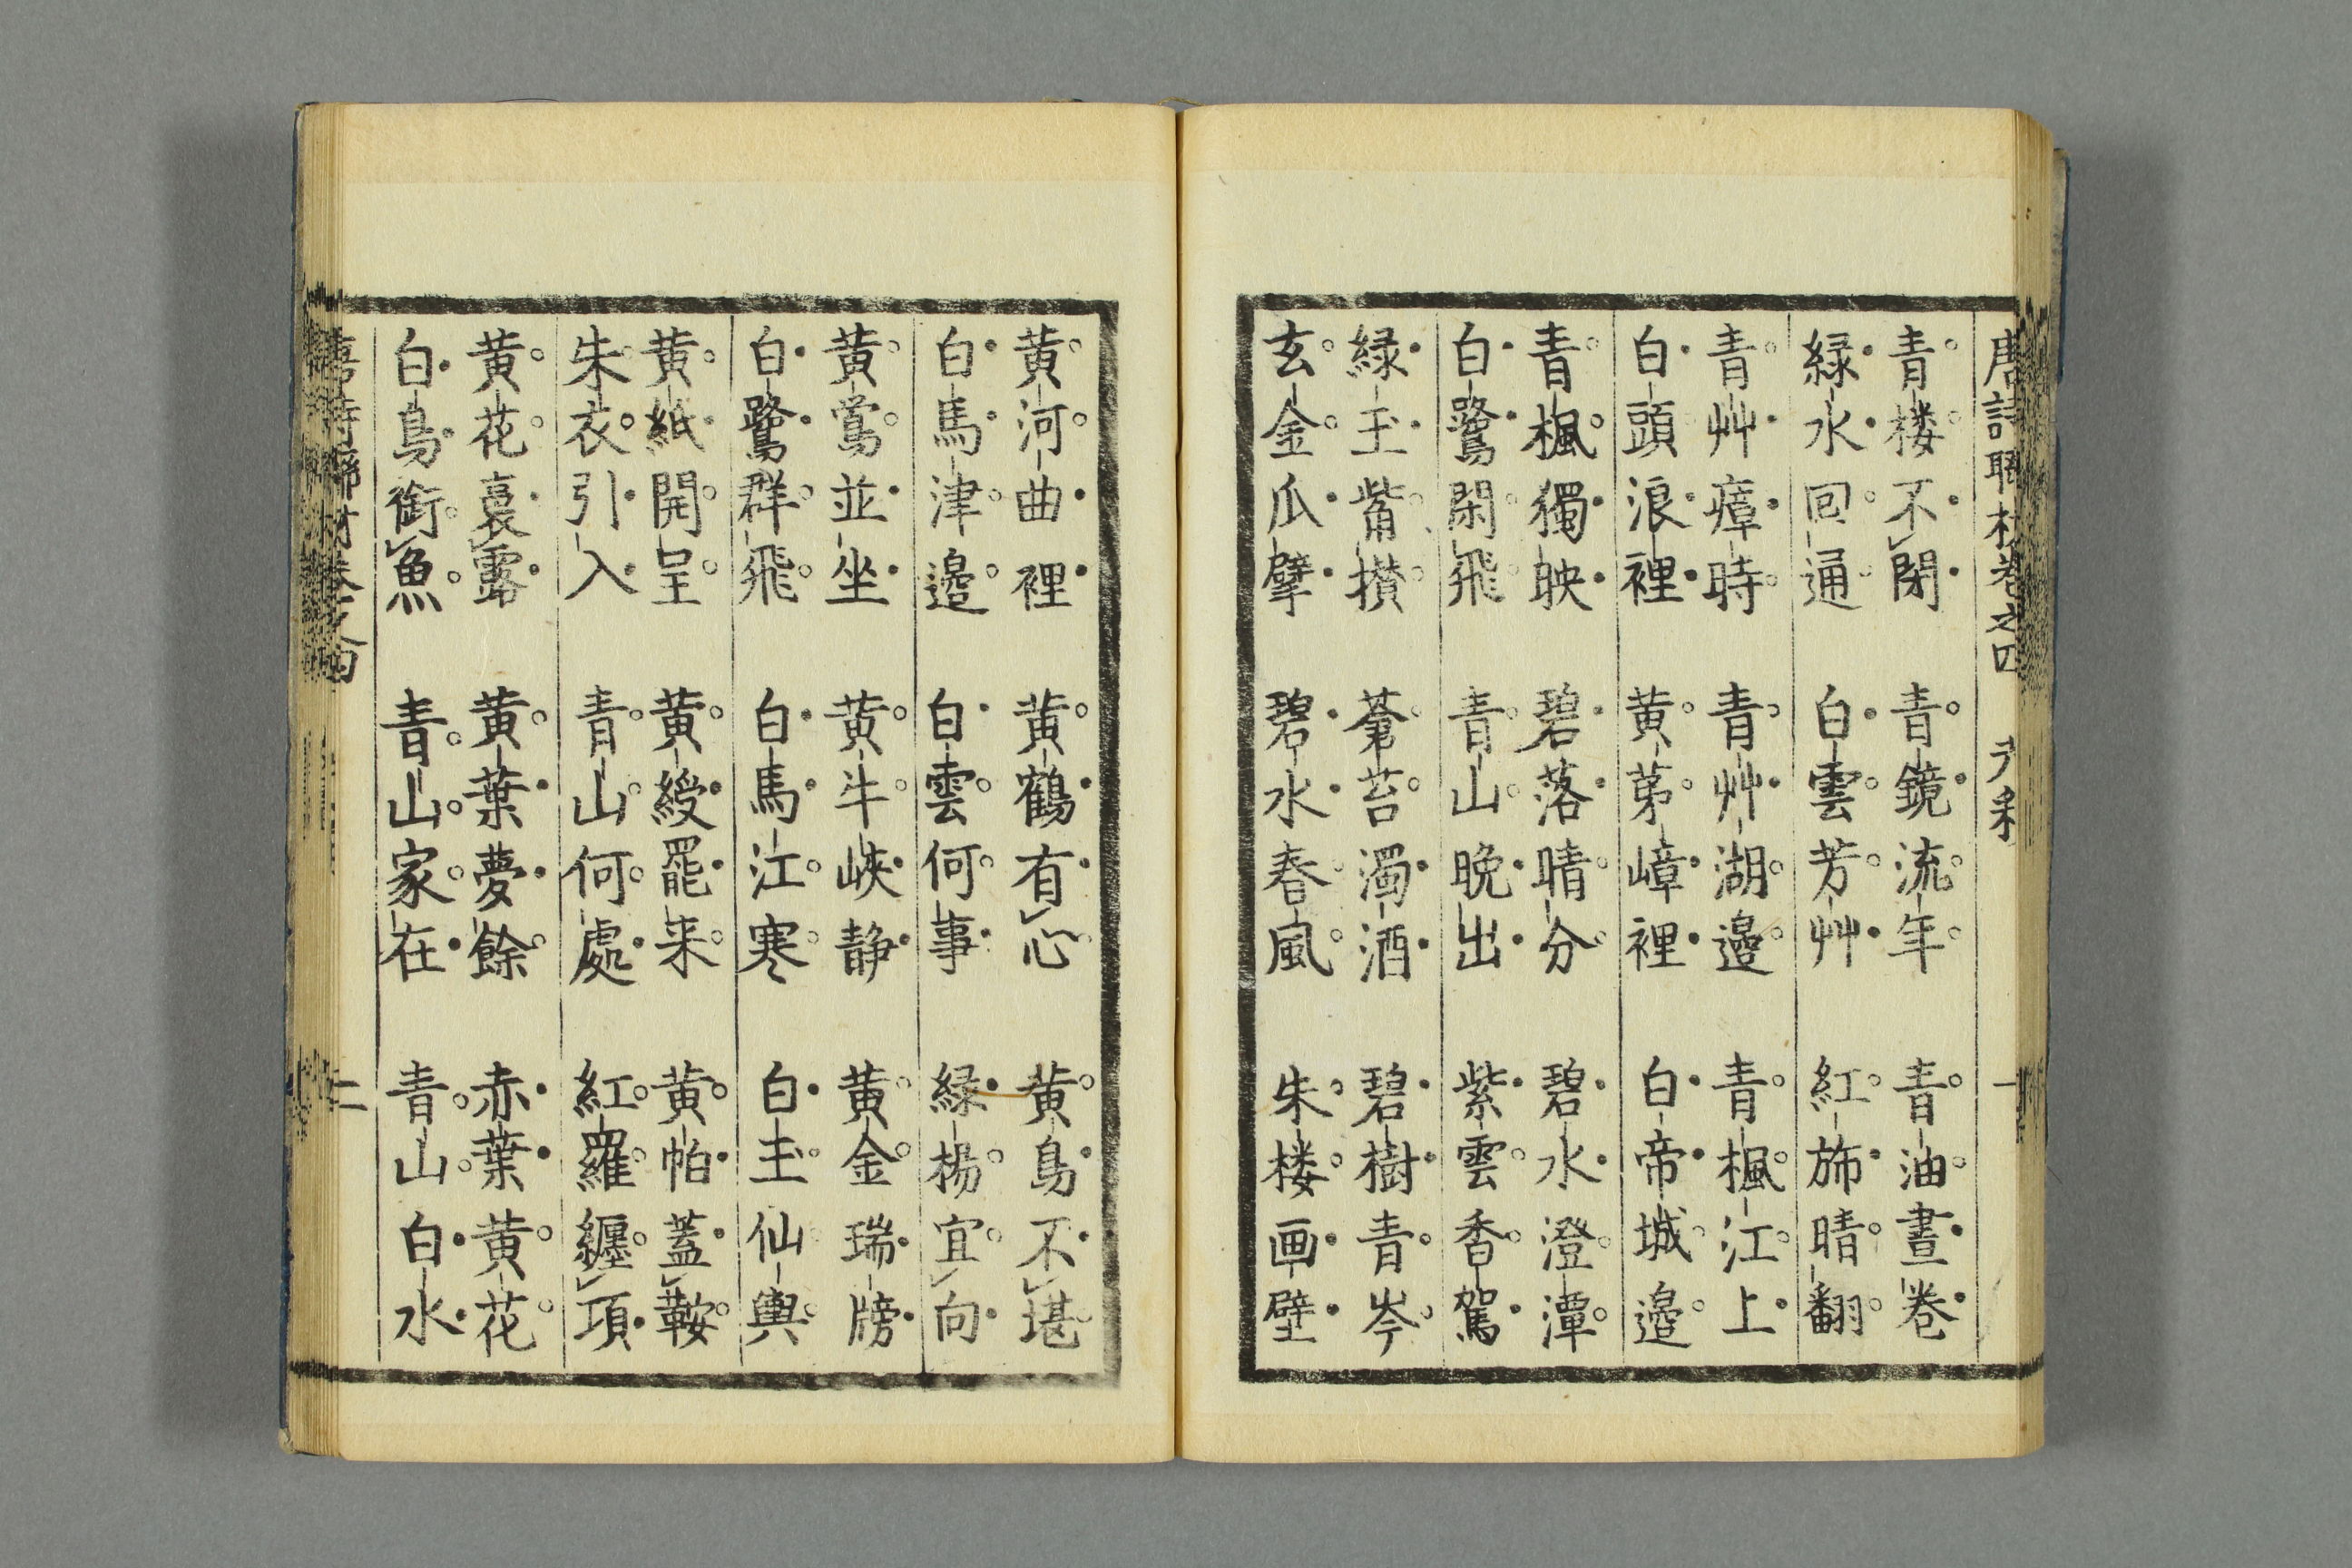 唐詩聯材卷之四
青楼不閉 青鏡流年 青油晝卷
緑水回通 白雲芳艸 紅旆晴翻
青艸瘴時 青艸湖邉 青楓江上
白頭浪裡 黄茅嶂裡 白帝城邉
青楓獨映 碧落晴分 碧水澄潭
白鷺閑飛 青山晩出 紫雲香駕
緑玉觜攅 蒼苔濁酒 碧樹青岑
玄金爪擘 碧水春風 朱楼画壁
黄河曲裡 黄鶴有心 黄鳥不堪
白馬津邉 白雲何事 緑楊宜向
黄鶯並坐 黄牛峽静 黄金瑞牓
白鷺群飛 白馬江寒 白玉仙輿
黄紙開呈 黄綬罷来 黄帕蓋鞍
朱衣引入 青山何處 紅羅纏項
黄花裛露 黄葉夢餘 赤葉黄花
白鳥銜魚 青山家在 青山白水
二